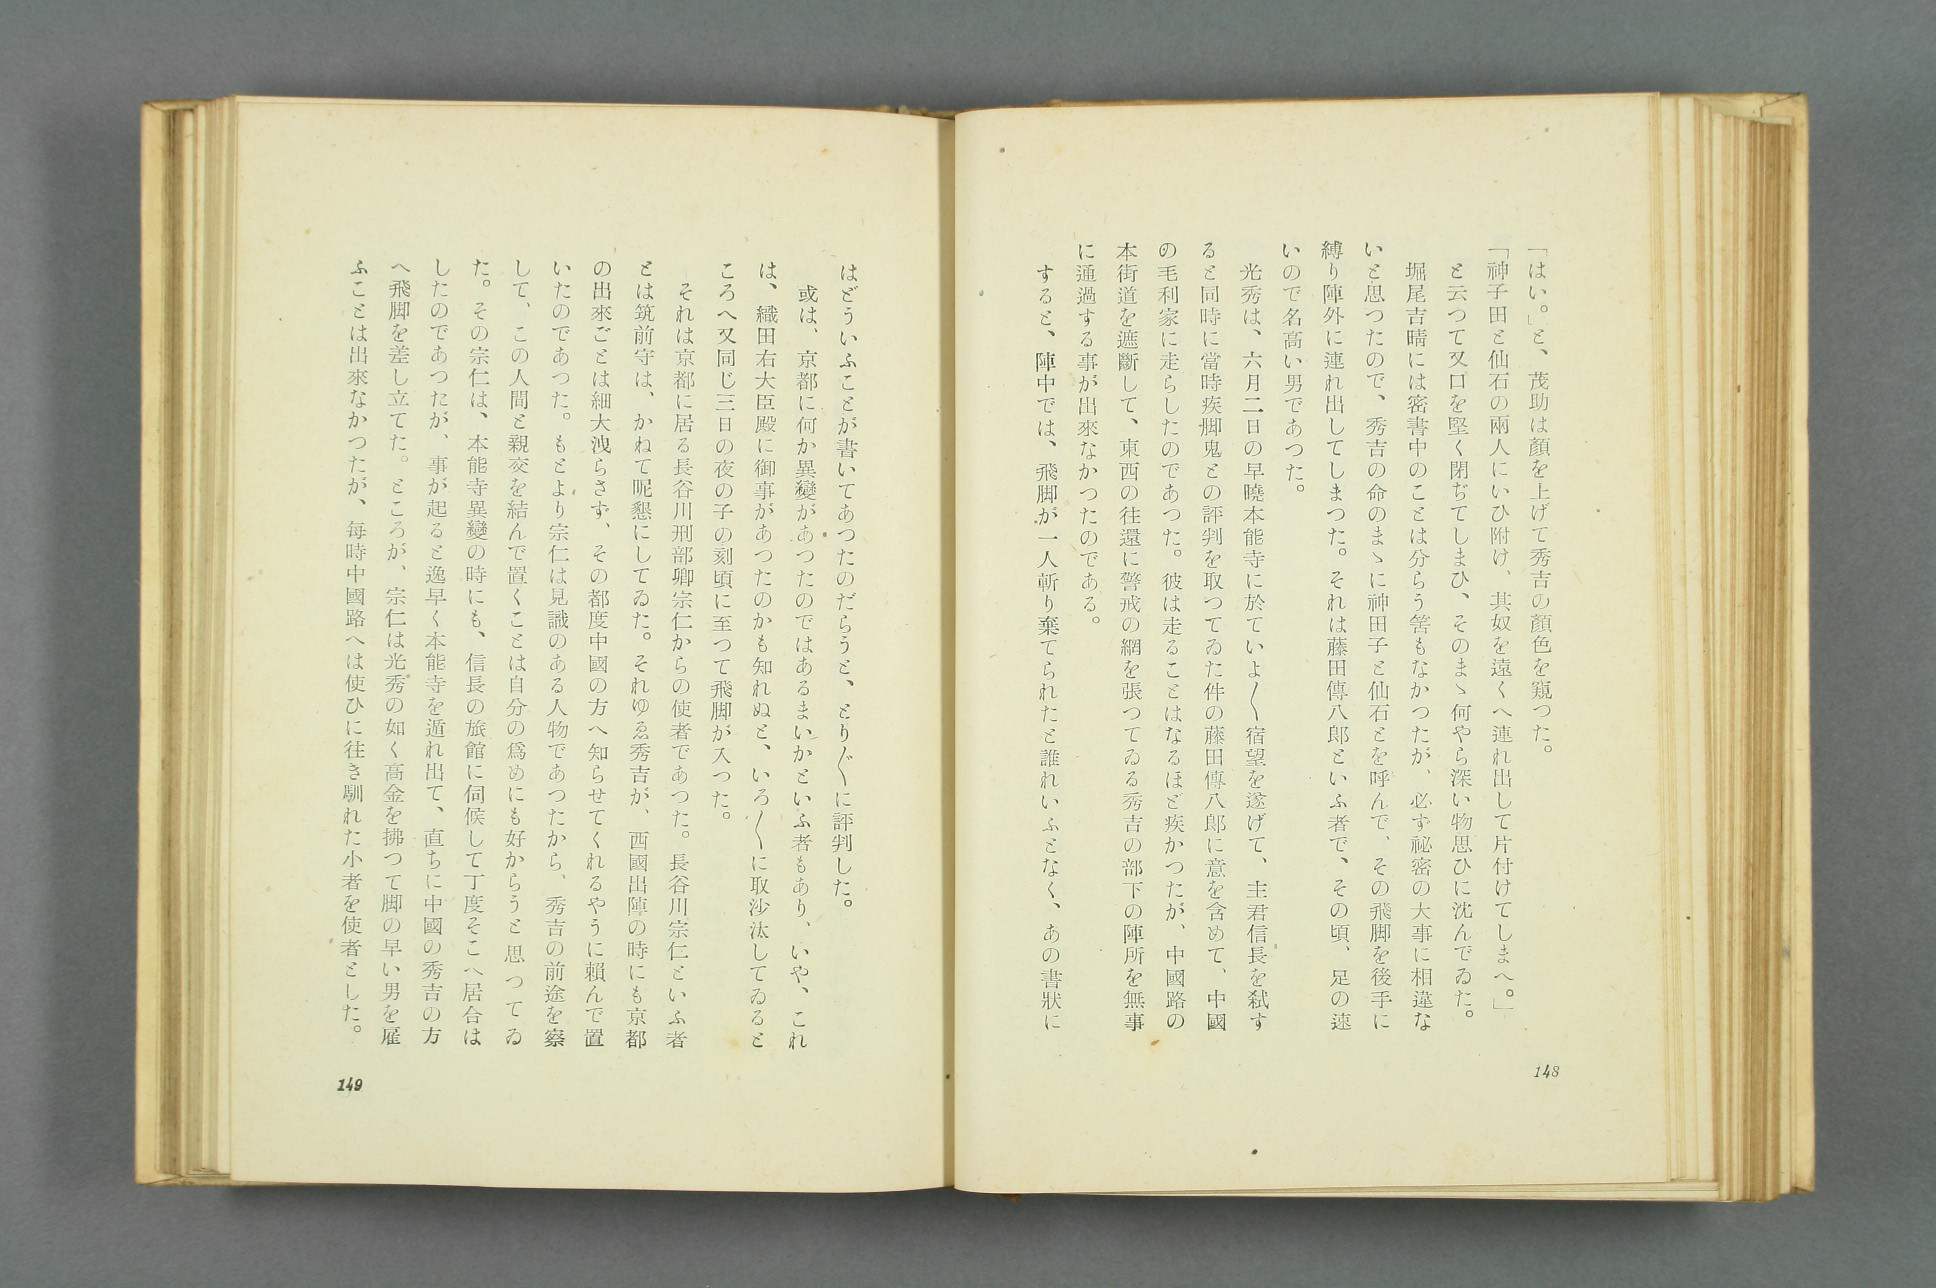 「はい。」と、茂助は顏を上げて秀吉の顏色を窺つた。
「神子田と仙石の兩人にいひ附け、其奴を遠くへ連れ出して片付けてしまへ。」
と云つて又口を堅く閉ぢてしまひ、そのまゝ何やら深い物思ひに沈んでゐた。
堀尾吉晴には密書中のことは分らう筈もなかつたが、必ず祕密の大事に相違な
いと思つたので、秀吉の命のまゝに神田子と仙石とを呼んで、その飛脚を後手に
縛り陣外に連れ出してしまつた。それは藤田傳八郎といふ者で、その頃、足の速
いので名高い男であつた。
光秀は、六月二日の早曉本能寺に於ていよ〳〵宿望を遂げて、主君信長を弑す
ると同時に當時疾脚鬼との評判を取つてゐた件の藤田傳八郎に意を含めて、中國
の毛利家に走らしたのであつた。彼は走ることはなるほど疾かつたが、中國路の
本街道を遮斷して、東西の往還に警戒の網を張つてゐる秀吉の部下の陣所を無事
に通過する事が出來なかつたのである。
すると、陣中では、飛脚が一人斬り棄てられたと誰れいふとなく、あの書狀に
148
はどういふことが書いてあつたのだらうと、とり〴〵に評判した。
或は、京都に何か異變があつたのではあるまいかといふ者もあり、いや、これ
は、織田右大臣殿に御事があつたのかも知れぬと、いろ〳〵に取沙汰してゐると
ころへ又同じ三日の夜の子の刻頃に至つて飛脚が入つた。
それは京都に居る長谷川刑部卿宗仁からの使者であつた。長谷川宗仁といふ者
とは筑前守は、かねて昵懇にしてゐた。それゆゑ秀吉が、西國出陣の時にも京都
の出來ごとは細大洩らさず、その都度中國の方へ知らせてくれるやうに賴んで置
いたのであつた。もとより宗仁は見識のある人物であつたから、秀吉の前途を察
して、この人間と親交を結んで置くことは自分の爲めにも好からうと思つてゐ
た。その宗仁は、本能寺異變の時にも、信長の旅館に伺候して丁度そこへ居合は
したのであつたが、事が起ると逸早く本能寺を遁れ出て、直ちに中國の秀吉の方
へ飛脚を差し立てた。ところが、宗仁は光秀の如く高金を拂つて脚の早い男を雇
ふことは出來なかつたが、每時中國路へは使ひに往き馴れた小者を使者とした。
149